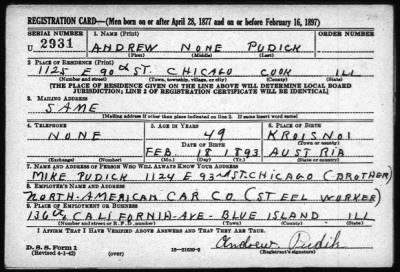 REGISTRATION CARD—(Men born on or after April 28, 1877 and on or before February 16, 1897)
SERIAL NUMBER 1. NAME (Print) ORDER NUMBER
U 2931 ANDREW NONE PUDICK
(First) (Middle) (Last)
2. PLACE OF RESIDENCE (Print)
1125 E 90th ST. CHICAGO COOK ILL
(Number and street) (Town, township, village, or city) (County) (State)
[THE PLACE OF RESIDENCE GIVEN ON THE LINE ABOVE WILL DETERMINE LOCAL BOARD
JURISDICTION; LINE 2 OF REGISTRATION CERTIFICATE WILL BE IDENTICAL]
3. MAILING ADDRESS
SAME
[Mailing address if other than place indicated on line 2. If same insert word same]
4. TELEPHONE 5. AGE IN YEARS 6. PLACE OF BIRTH
NONE 49 KROISNOI
DATE OF BIRTH (Town or county)
FEB. 18 1893 AUSTRIA
(Exchange) (Number) (Mo.) (Day) (Yr.) (State or country)
7. NAME AND ADDRESS OF PERSON WHO WILL ALWAYS KNOW YOUR ADDRESS
MIKE PUDICK 1124 E 93rd ST. CHICAGO (BROTHER)
8. EMPLOYER'S NAME AND ADDRESS
NORTH-AMERICAN CAR CO (STEEL WORKER)
9. PLACE OF EMPLOYMENT OR BUSINESS
136th CALIFORNIA-AVE- BLUE ISLAND ILL
(Number and street or R. F. D. number) (Town) (County) (State)
I AFFIRM THAT I HAVE VERIFIED ABOVE ANSWERS AND THAT THEY ARE TRUE.
D. S. S. Form 1 Andrew Pudik
(Revised 4-1-42) (over) (Registrant's signature)